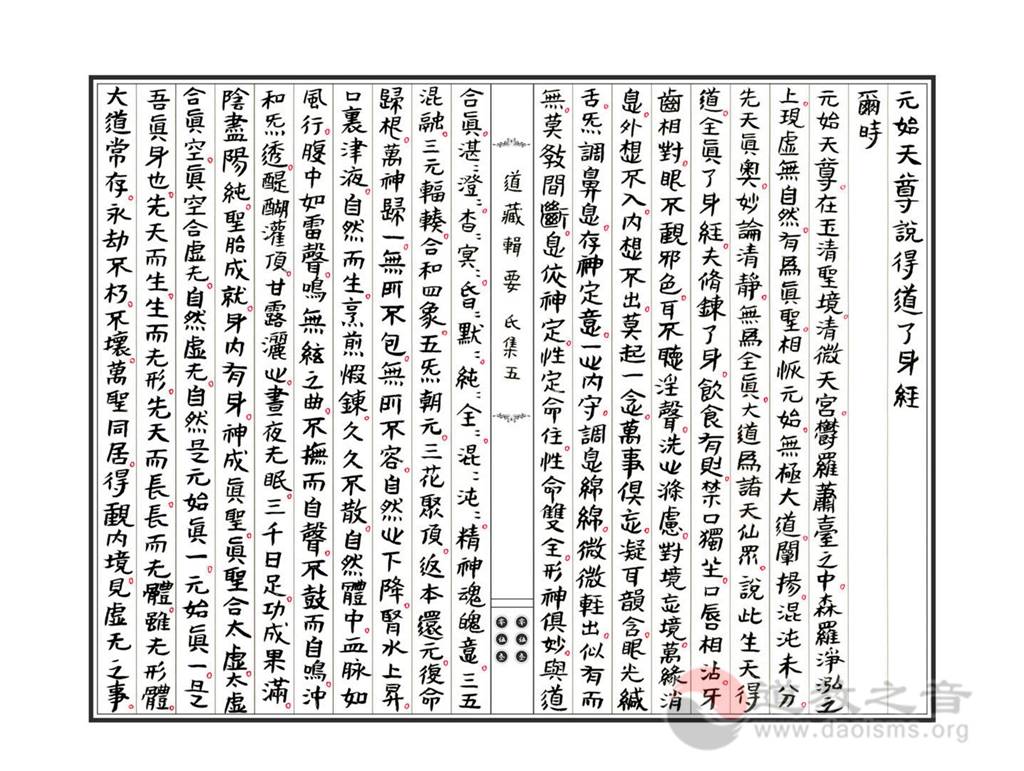 元始天尊說得道了身經
爾時
元始天尊在玉清聖境清微天宮欝羅蕭臺之中森羅淨泓之
上現虛無自然有為眞聖相恢元始無極大道闡揚混沌未分
先天眞奧妙論清靜無為全眞大道為諸天仙眾說此生天得
道全眞了身經夫脩鍊了身飲食有則禁口獨坐口唇相沾牙
齒相對眼不觀邪色耳不聽淫聲洗心滌慮對境忘境萬緣消
息外想不入內想不出莫起一念萬事俱忘凝耳韻含眼光緘
舌炁調鼻息存神定意一心內守調息綿綿微微輕出似有而
無莫教間斷息依神定性定命住性命雙全形神俱妙與道
道藏輯要 氐集五
合眞湛〻澄〻杳〻冥〻昏〻默〻純〻全〻混〻沌〻精神魂魄意三五
混融三元輻輳合和四象五炁朝元三花聚頂返本還元復命
歸根萬神歸一無所不包無所不容自然心下降腎水上昇
口裏津液自然而生烹煎煆鍊久久不散自然體中血脉如
風行腹中如雷聲鳴無絃之曲不撫而自聲不鼓而自鳴沖
和炁透醍醐灌頂甘露灑心晝夜无眠三千日足功成果滿
陰盡陽純聖胎成就身內有身神成眞聖眞聖合太虛太虛
合眞空眞空合虛无自然虛无自然是元始眞一元始眞一是
吾眞身也先天而生生而无形先天而長長而无體雖无形體
大道常存永劫不朽不壞萬聖同居得觀內境見虛无之事
道教之音
www.daoisms.org